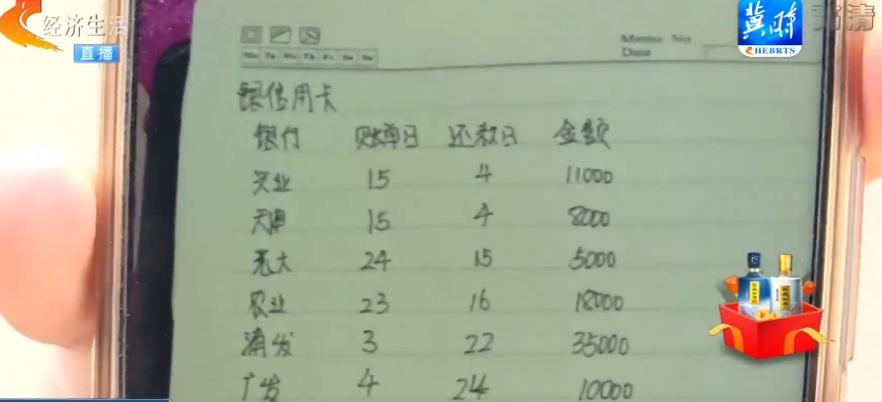 经济生活
直播
冀时
CHEBRTS
高清
Memo No
Date
Mo Tu We Th Fr Sa Su
银信用卡
银行 账单日 还款日 金额
兴业 15 4 11000
天津 15 4 8000
光大 24 15 5000
农业 23 16 18000
浦发 3 22 35000
广发 4 24 10000